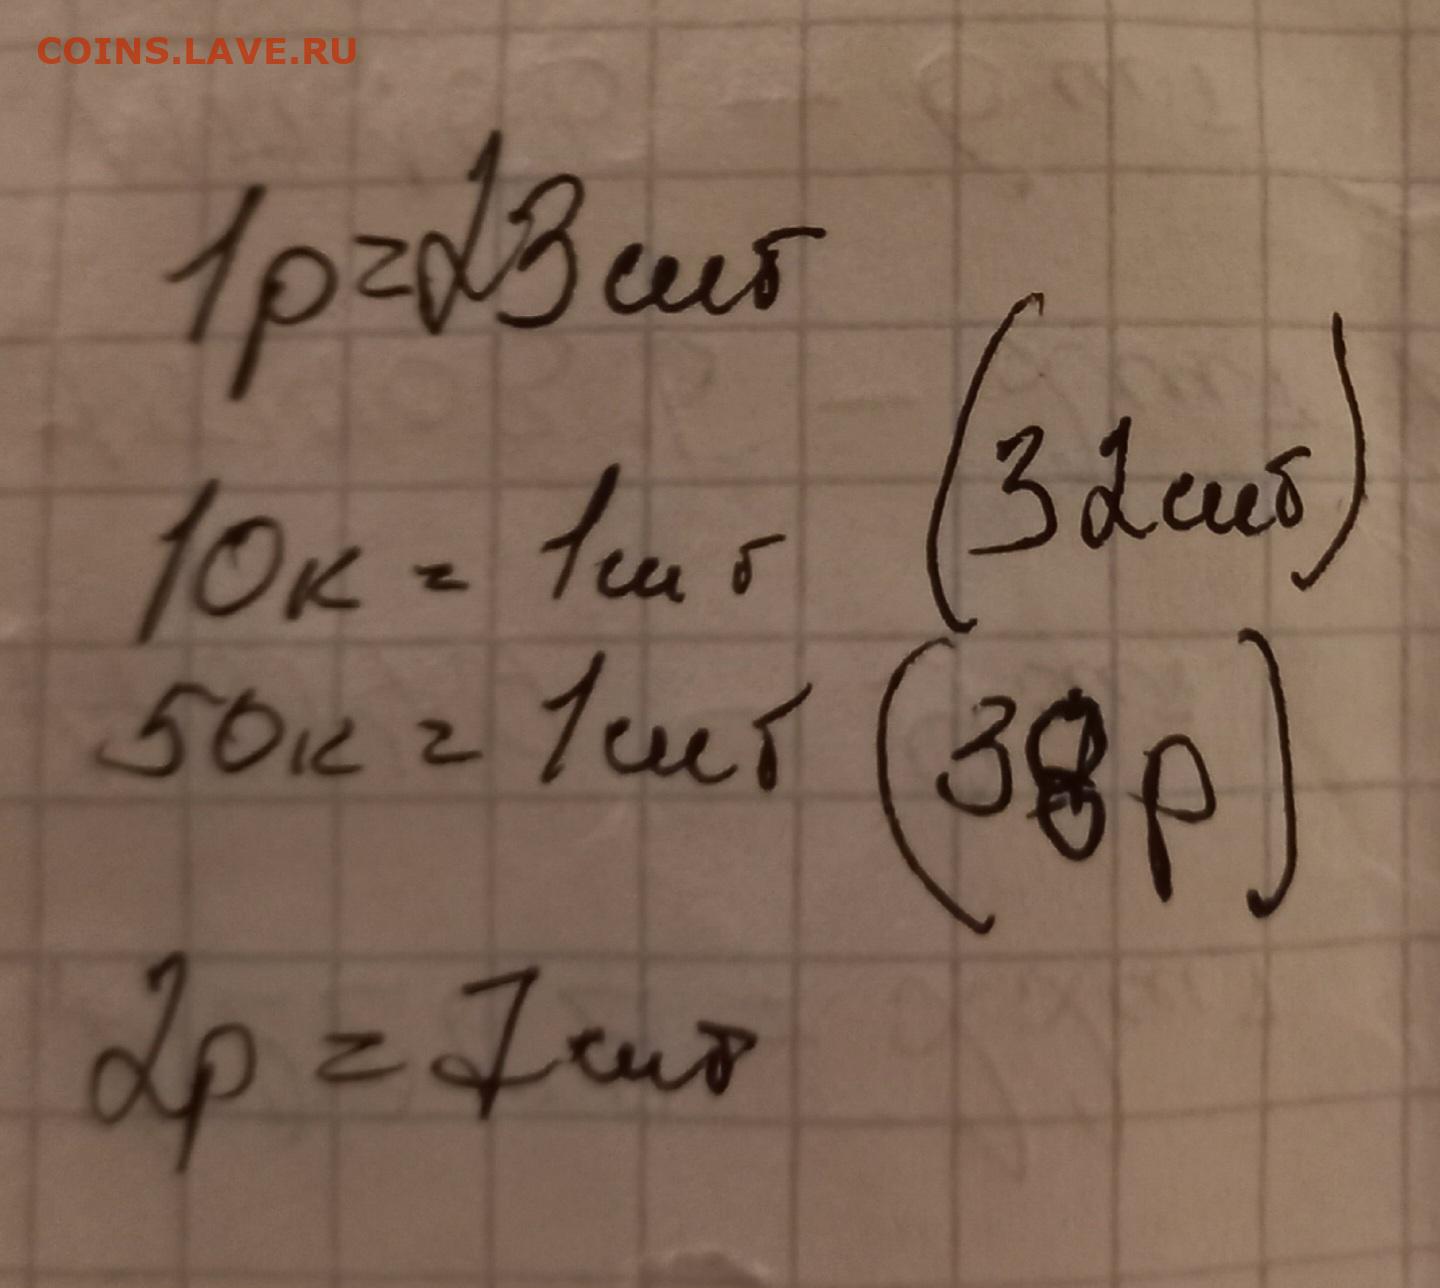 COINS.LAVE.RU
1р=23шт
10к = 1шт (32шт)
50к = 1шт (38р)
2р = 7шт